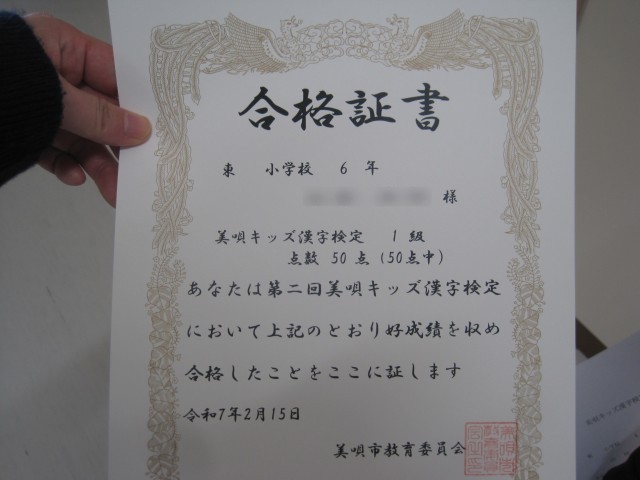 合格証書
東 小学校 6 年
様
美唄キッズ漢字検定 1 級
点数 50 点 (50点中)
あなたは第二回美唄キッズ漢字検定
において上記のとおり好成績を収め
合格したことをここに証します
令和7年2月15日
美唄市教育委員会